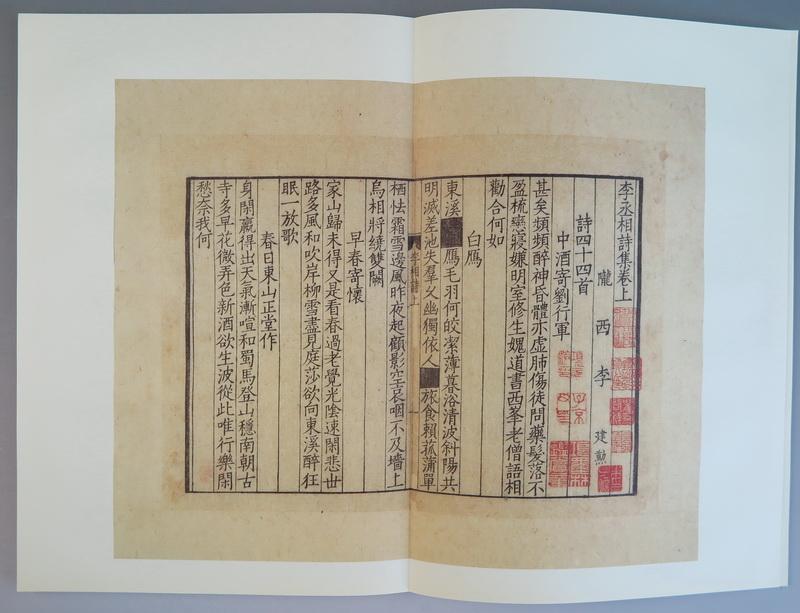 李丞相詩集卷上
隴西李建勲
詩四十四首
中酒寄劉行軍
甚矣頻頻醉神昏體亦虚肺傷徒問藥髮落不
盈梳戀寢嫌明室修生媿道書西峯老僧語相
勸合何如
白鴈
東溪鴈毛羽何皎潔薄暮浴清波斜陽共
明滅差池失羣乆幽獨依人旅食賴菰蒲單
李相詩上
栖怯霜雪邊風昨夜起顧影空哀咽不及墻上
烏相將繞雙闕
早春寄懷
家山歸未得又是看春過老覺光陰速閑悲世
路多風和吹岸柳雪盡見庭莎欲向東溪醉狂
眠一放歌
春日東山正堂作
身閑贏得出天氣漸暄和蜀馬登山穩南朝古
寺多早花微弄色新酒欲生波從此唯行樂閑
愁奈我何